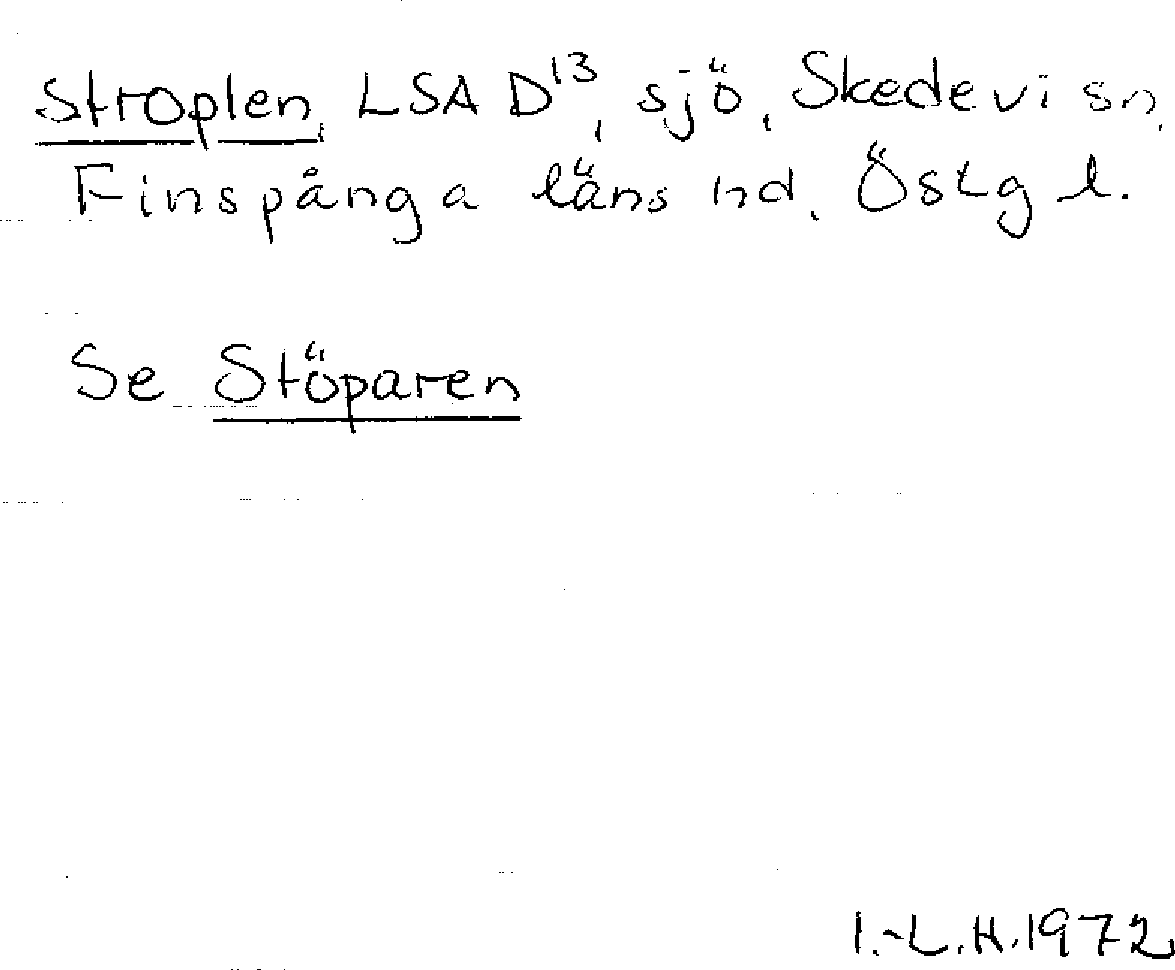 Stroplen, LSA D13, sjö, Skedevi sn,
Finspånga läns hd, Östg l.
Se Stöparen
I.-L.H.1972